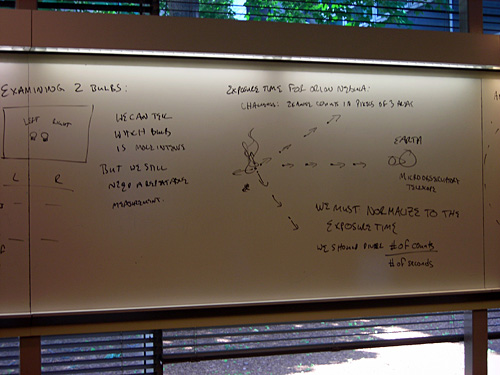 EXAMINING 2 BULBS:
LEFT RIGHT
L R
WE CAN TELL
WHICH BULB
IS MORE INTENSE
BUT WE STILL
NEED A REPEATABLE
MEASUREMENT.
EXPOSURE TIME FOR ORION NEBULA:
COUNTS IN PIXELS OF 3 AREAS
EARTH
MICROOBSERVATORY
TELESCOPE
WE MUST NORMALIZE TO THE
EXPOSURE TIME
WE SHOULD # of counts
# of seconds